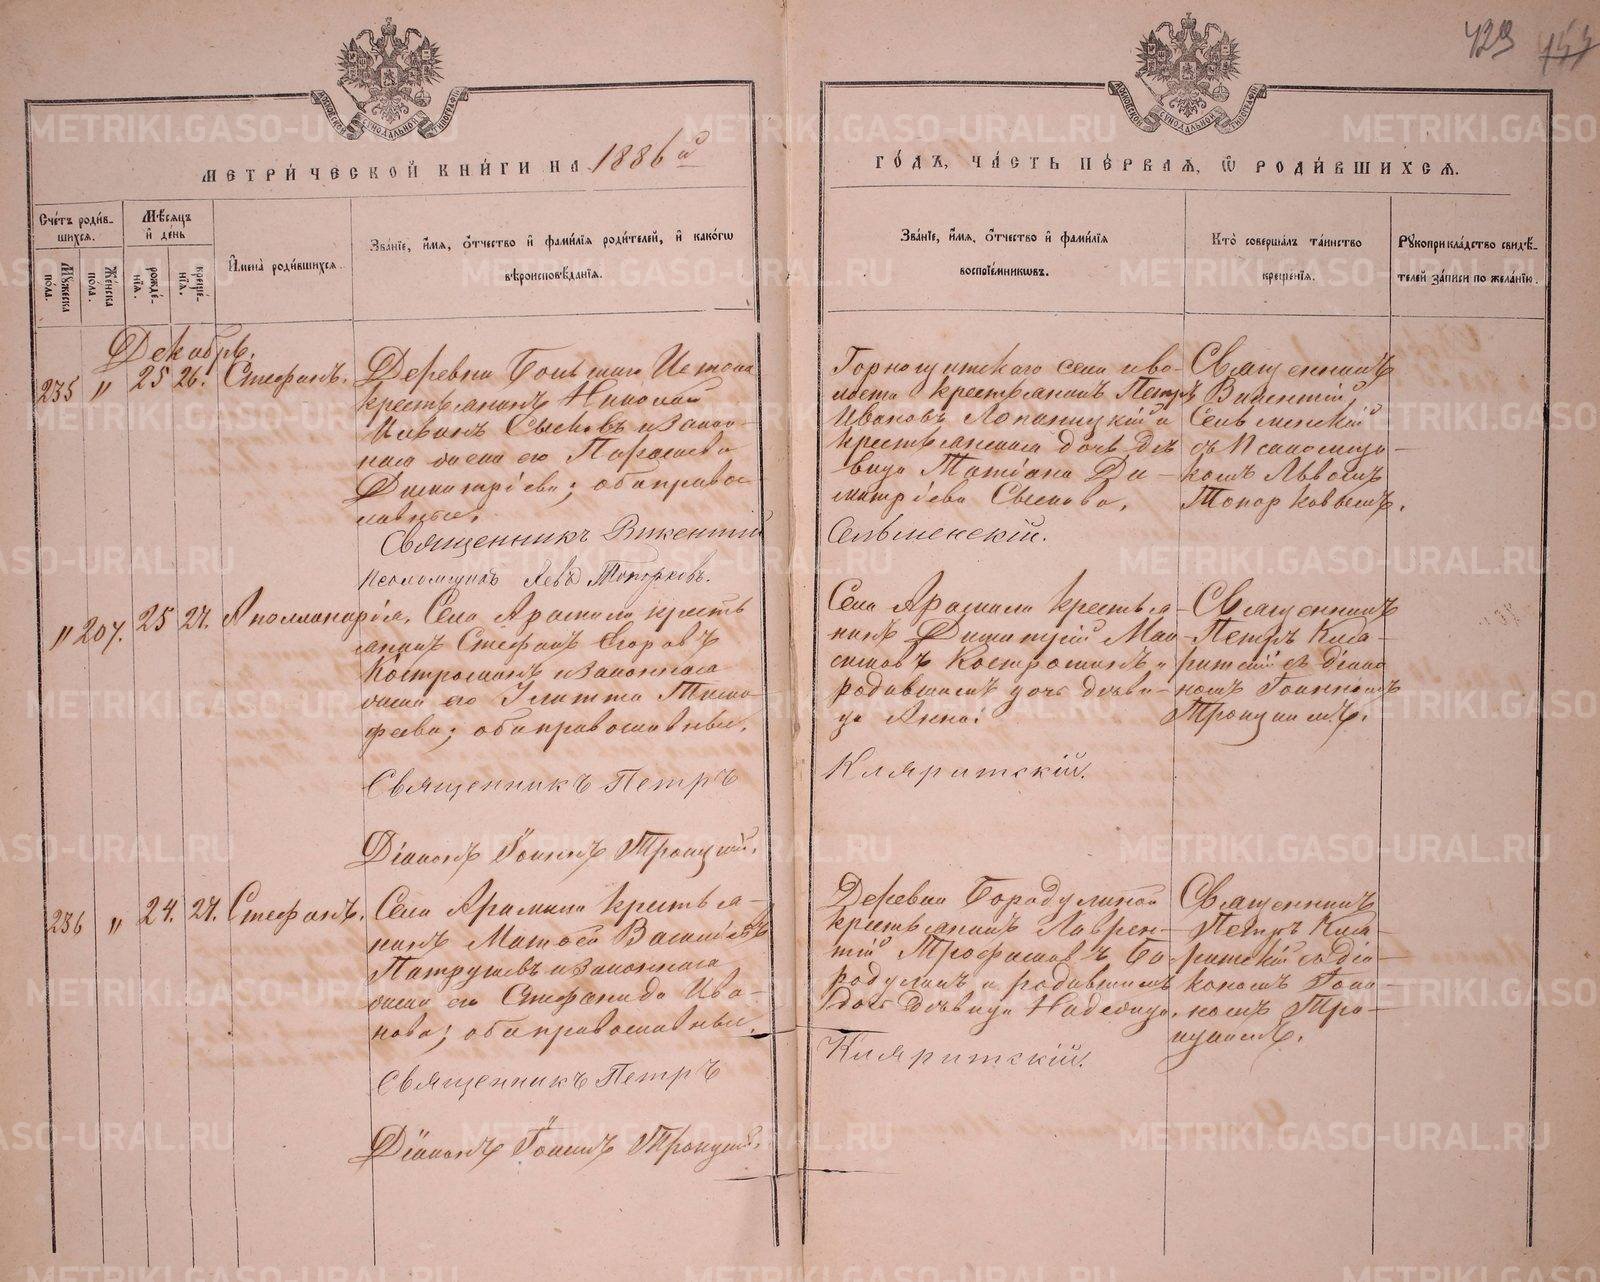 429 144
МОСКОВСКОЙ СѴНОДАЛЬНОЙ ТИПОГРАФІИ
МОСКОВСКОЙ СѴНОДАЛЬНОЙ ТИПОГРАФІИ
МЕТРИ́ЧЕСКОЙ КНИ́ГИ НА 1886й
ГО́ДЪ, ЧА́СТЬ ПЕ́РВАѦ, Ѿ РОДИ́ВШИХСѦ.
Сче́тъ роди́в-
шихсѧ.
Мѣ́сѧцъ
и҆ де́нь
Му́жеска по́ла.
Же́нска по́ла.
рожде́-нїѧ.
креще́-нїѧ.
И҆мена̀ роди́вшихсѧ.
Зва́нїе, и҆́мѧ, ѻ҆́тчество и҆ фами́лїѧ роди́телей, и҆ како́гѡ
вѣроисповѣ́данїѧ.
Зва́нїе, и҆́мѧ, ѻ҆́тчество и҆ фами́лїѧ
воспрїе́мникѡвъ.
Кто̀ соверша́лъ та́инство
креще́нїѧ.
Рꙋкоприкла́дство свидѣ́-
телей за́писи по жела́нїю.
Декабрь.
235 " 25 26. Стефанъ.
Деревни Большаго Истока
крестьянинъ Николай
Ивановъ Сысковъ и закон-
ная жена его Параскева
Димитріева; оба правос-
лавные.
Священникъ Викентій
Псаломщикъ Левъ Топорковъ.
Горнощитскаго села и во-
лости крестьянинъ Петръ
Ивановъ Лопатицкій и
крестьянская дочь дѣ-
вица Татіана Ди-
митріева Сыскова.
Сельменскій.
Священникъ
Викентій
Сельменскій
съ Псаломщи-
комъ Львомъ
Топорковымъ.
" 207. 25 27. Аполлинарія.
Села Арамили кресть
янинъ Стефанъ Егоровъ
Костроминъ и законная
жена его Улитта Тимо-
феева; оба православные.
Священникъ Петръ
Діаконъ Іоаннъ Троицкій.
Села Арамили крестья-
нинъ Димитрій Мак-
симовъ Костроминъ и
родившагося дочь дѣви-
ца Анна.
Кляритскій.
Священникъ
Петръ Кля-
ритскій съ діако
номъ Іоанномъ
Троицкимъ.
236 " 24. 27. Стефанъ.
Села Арамили крестья-
нинъ Матвей Васильевъ
Патрушевъ и законная
жена его Стефанида Ива-
нова; оба православные.
Священникъ Петръ
Діаконъ Іоаннъ Троицкій.
Деревни Бородулиной
крестьянинъ Лаврен-
тій Трофимовъ Бо-
родулинъ и родившагося
дочь дѣвица Надежда.
Кляритскій.
Священникъ
Петръ Кля-
ритскій съ діа-
кономъ Іоан-
номъ Тро-
ицкимъ.
METRIKI.GASO-URAL.RU